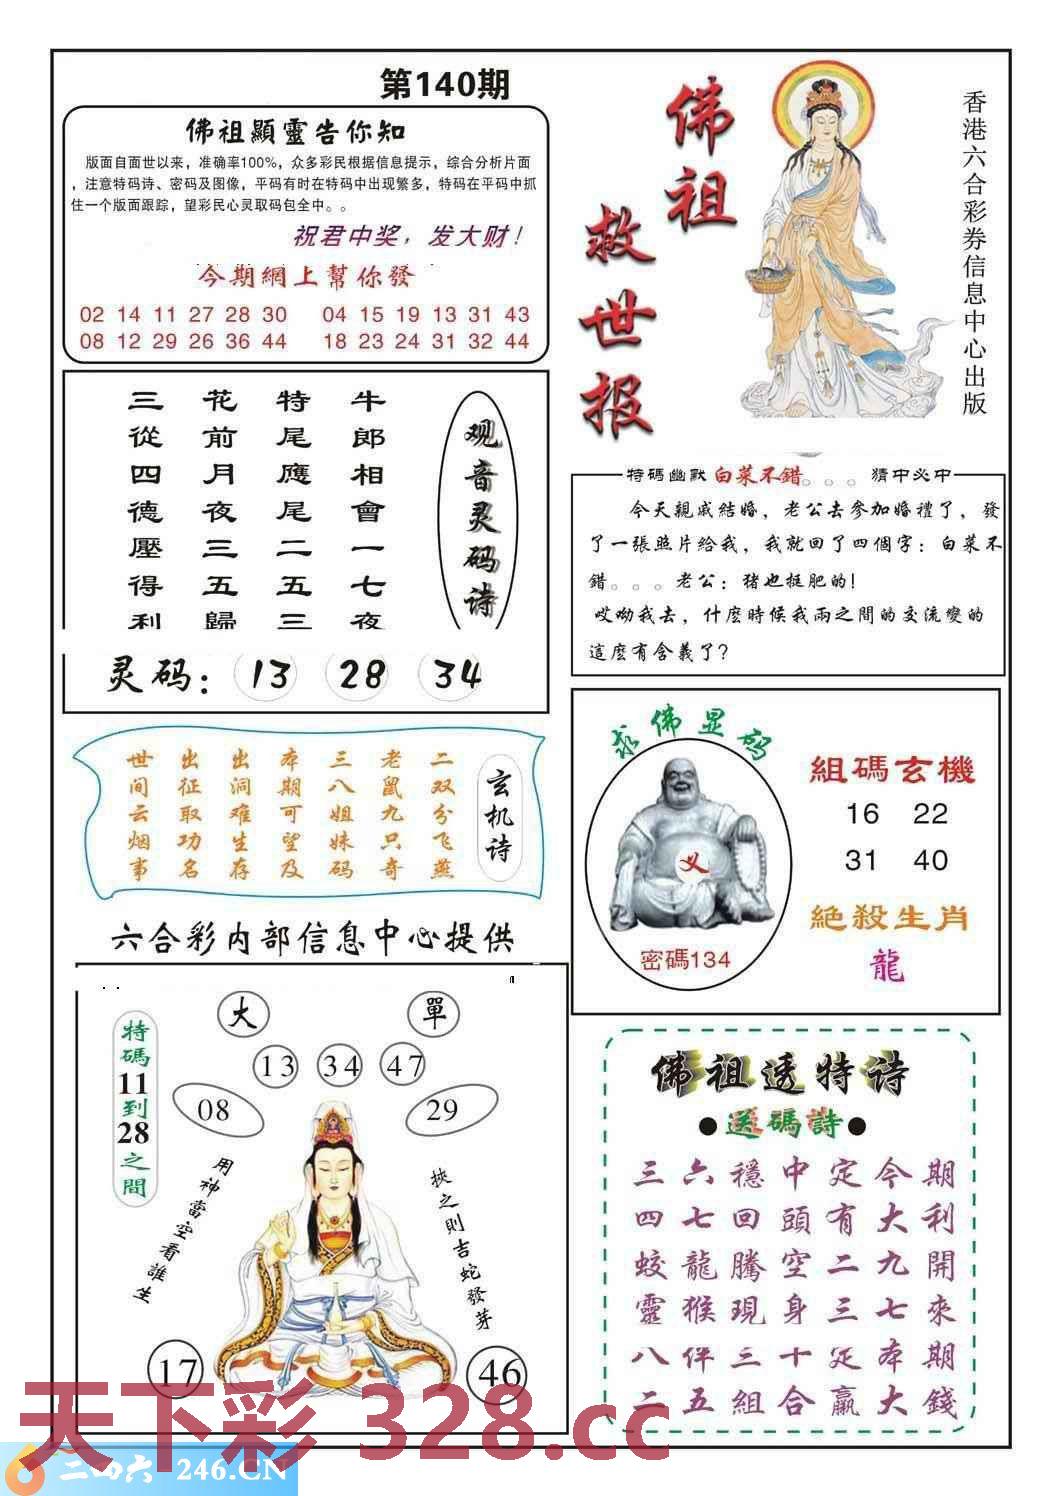 第140期
佛祖顯靈告你知
版面自面世以来，准确率100%，众多彩民根据信息提示，综合分析片面
，注意特码诗、密码及图像，平码有时在特码中出现繁多，特码在平码中抓
住一个版面跟踪，望彩民心灵取码包全中。。
祝君中奖，发大财！
今期網上幫你發
02 14 11 27 28 30 04 15 19 13 31 43
08 12 29 26 36 44 18 23 24 31 32 44
佛祖
救世报
香港六合彩券信息中心出版
观音灵码诗
牛郎相會一七夜
特尾應尾二五三
花前月夜三五歸
三從四德壓得利
灵码：13 28 34
特碼幽默 白菜不错。。。猜中必中
今天親戚結婚，老公去參加婚禮了，發
了一張照片给我，我就回了四個字：白菜不
错。。。老公：猪也挺肥的！
哎呦我去，什麽時候我兩之間的交流變的
這麽有含義了？
玄机诗
二双分飞燕
老鼠九只奇
三八姐妹码
本期可望及
出洞难生存
出征取功名
世间云烟事
求佛显码
义
密碼134
組碼玄機
16 22
31 40
絕殺生肖
龍
六合彩内部信息中心提供
大 單
13 34 47
08 29
特碼11到28之間
用神當空看誰生
挾之則吉蛇發芽
17 46
佛祖透特诗
●送碼詩●
三六穩中定今期
四七回頭有大利
蛟龍騰空二九開
靈猴現身三七來
八伴三十定本期
二五組合贏大錢
天下彩 328.cc
二四六 246.CN